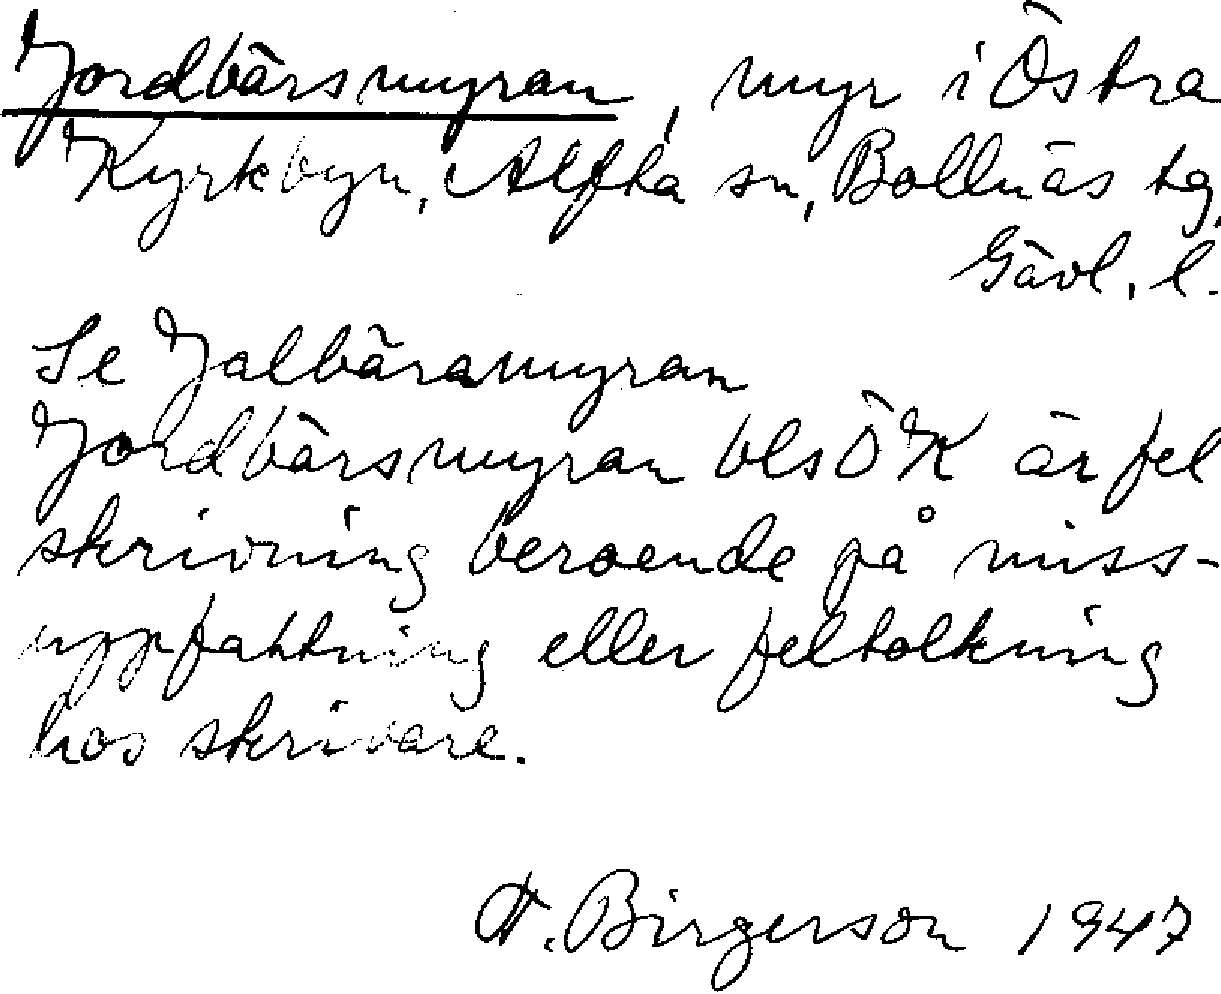 Jordbärsmyran, myr i Östra
Kyrkbyn, Alfta sn, Bollnäs tg,
Gävl. l.
Se Jalbäramyran
Jordbärsmyran bls ÖK är fel
skrivning beroende på miss-
uppfattning eller feltolkning
hos skrivare.
H. Birgerson 1947